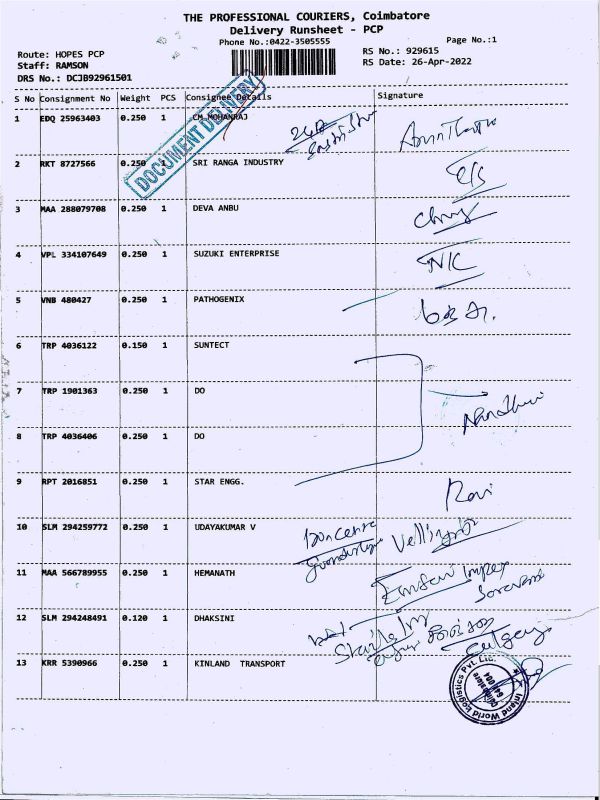 THE PROFESSIONAL COURIERS, Coimbatore
Delivery Runsheet - PCP
Phone No.:0422-3505555
Page No.:1
Route: HOPES PCP
RS No.: 929615
Staff: RAMSON
RS Date: 26-Apr-2022
DRS No.: DCJB92961501
S No Consignment No Weight PCS Consignee Details Signature
DOCUMENT DELIVERY
1 EDQ 25963403 0.250 1 CM MOHANRAJ
2 RKT 8727566 0.250 1 SRI RANGA INDUSTRY
3 MAA 288079708 0.250 1 DEVA ANBU
4 VPL 334107649 0.250 1 SUZUKI ENTERPRISE NK
5 VNB 480427 0.250 1 PATHOGENIX
6 TRP 4036122 0.150 1 SUNTECT
7 TRP 1901363 0.250 1 DO
8 TRP 4036406 0.250 1 DO
9 RPT 2016851 0.250 1 STAR ENGG. Ravi
10 SLM 294259772 0.250 1 UDAYAKUMAR V
11 MAA 566789955 0.250 1 HEMANATH Impex
12 SLM 294248491 0.120 1 DHAKSINI
13 KRR 5390966 0.250 1 KINLAND TRANSPORT
Inland World Logistics Pvt. Ltd.
Coimbatore
641 004